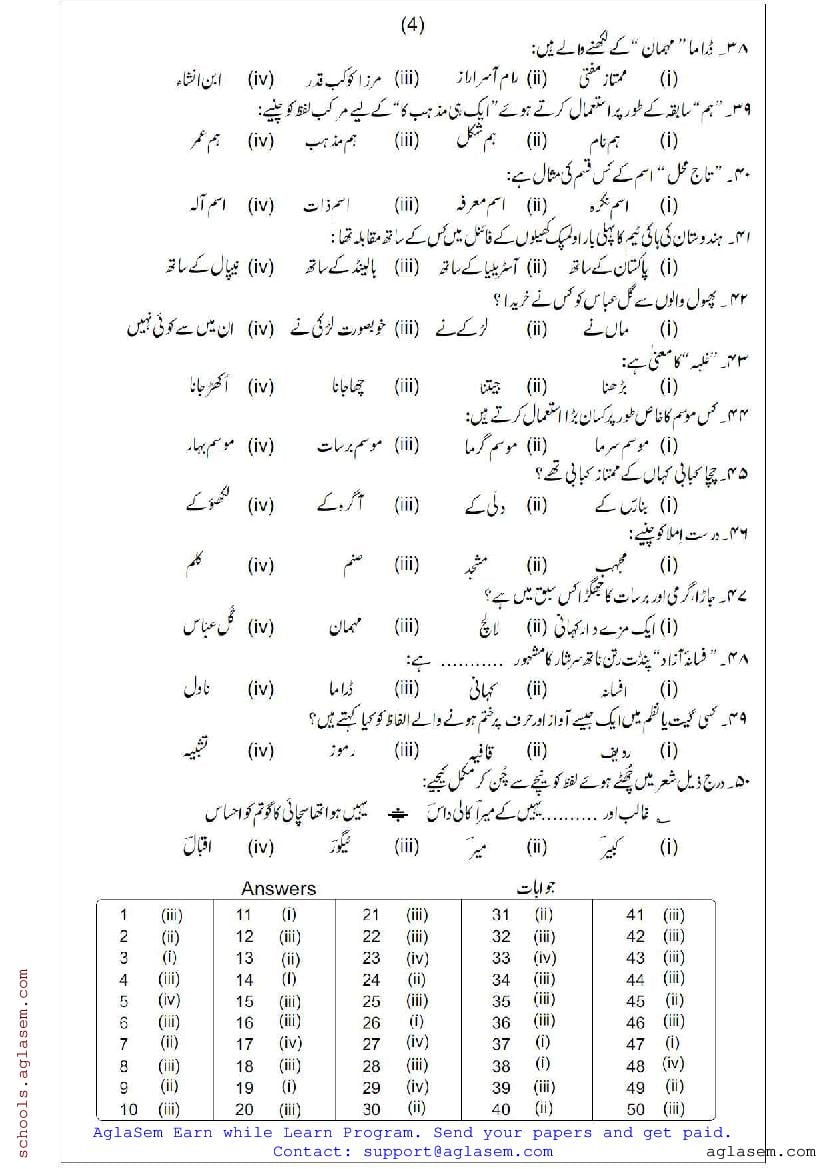 (4)
۳۸۔ ڈراما ”مہمان“ کے لکھنے والے ہیں:
(i) ممتاز مفتی (ii) رام آسرا راز (iii) مرزا کوکب قدر (iv) ابن انشاء
۳۹۔ ”ہم“ سابقہ کے طور پر استعمال کرتے ہوئے ”ایک ہی مذہب کا“ کے لیے مرکب لفظ کو چنیے:
(i) ہم نام (ii) ہم شکل (iii) ہم مذہب (iv) ہم عمر
۴۰۔ ”تاج محل“ اسم کے کس قسم کی مثال ہے:
(i) اسم نکرہ (ii) اسم معرفہ (iii) اسم ذات (iv) اسم آلہ
۴۱۔ ہندوستان کی ہاکی ٹیم کا پہلی بار اولمپک کھیلوں کے فائنل میں کس کے ساتھ مقابلہ تھا:
(i) پاکستان کے ساتھ (ii) آسٹریلیا کے ساتھ (iii) ہالینڈ کے ساتھ (iv) نیپال کے ساتھ
۴۲۔ پھول والوں سے گل عباس کو کس نے خریدا؟
(i) ماں نے (ii) لڑکے نے (iii) خوبصورت لڑکی نے (iv) ان میں سے کوئی نہیں
۴۳۔ ”غلبہ“ کا معنی ہے:
(i) بڑھنا (ii) جیتنا (iii) چھا جانا (iv) اکھڑ جانا
۴۴۔ کس موسم کا خاص طور پر کسان بڑا استعمال کرتے ہیں:
(i) موسم سرما (ii) موسم گرما (iii) موسم برسات (iv) موسم بہار
۴۵۔ چچا کبابی کہاں کے ممتاز کبابی تھے؟
(i) بنارس کے (ii) دلی کے (iii) آگرہ کے (iv) لکھنؤ کے
۴۶۔ درست املا کو چنیے:
(i) مجہب (ii) مشجد (iii) صنم (iv) کلم
۴۷۔ جاڑا، گرمی اور برسات کا جھگڑا کس سبق میں ہے؟
(i) ایک مزے دار کہانی (ii) لالچ (iii) مہمان (iv) گل عباس
۴۸۔ ”فسانۂ آزاد“ پنڈت رتن ناتھ سرشار کا مشہور ........... ہے:
(i) افسانہ (ii) کہانی (iii) ڈراما (iv) ناول
۴۹۔ کسی گیت یا نظم میں ایک جیسے آواز اور حرف پر ختم ہونے والے الفاظ کو کیا کہتے ہیں؟
(i) ردیف (ii) قافیہ (iii) رموز (iv) تشبیہ
۵۰۔ درج ذیل شعر میں چھٹے ہوئے لفظ کو نیچے سے چُن کر مکمل کیجیے:
؎ غالب اور .......... یہیں کے میرا کالی داس ÷ یہیں ہوا تھا سچائی کا گوتم کو احساس
(i) کبیر (ii) میر (iii) ٹیگور (iv) اقبال
Answers جوابات
1 (iii) 11 (i) 21 (iii) 31 (ii) 41 (iii)
2 (ii) 12 (iii) 22 (iii) 32 (iii) 42 (iii)
3 (i) 13 (ii) 23 (iv) 33 (iv) 43 (iii)
4 (iii) 14 (I) 24 (ii) 34 (iii) 44 (iii)
5 (iv) 15 (iii) 25 (iii) 35 (iii) 45 (ii)
6 (iii) 16 (iii) 26 (i) 36 (iii) 46 (iii)
7 (ii) 17 (iv) 27 (iv) 37 (i) 47 (i)
8 (iii) 18 (iii) 28 (iii) 38 (i) 48 (iv)
9 (ii) 19 (i) 29 (iv) 39 (iii) 49 (ii)
10 (iii) 20 (iii) 30 (ii) 40 (ii) 50 (iii)
AglaSem Earn while Learn Program. Send your papers and get paid.
Contact: support@aglasem.com
aglasem.com
schools.aglasem.com